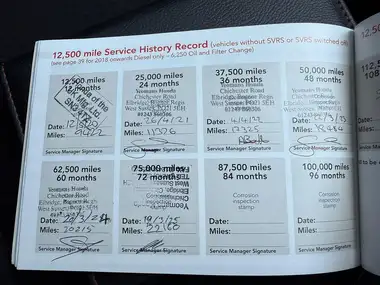 12,500 mile Service History Record (vehicles without SVRS or SVRS switched off)
(see page 39 for 2018 onwards Diesel only – 6,250 Oil and Filter Change)
12,500 miles
12 months
of the
Date:
Miles:
Service Manager Signature
25,000 miles
24 months
Yeomans Honda
Chichester Road
Bognor Regis
West Sussex PO21 5EH
Date: 26/4/21
Miles: 11326
Service Manager Signature
37,500 miles
36 months
Yeomans Honda
Chichester Road
Elbridge, Bognor Regis
West Sussex PO21 5EH
01243
Date: 4/4/22
Miles: 17325
Service Manager Signature
50,000 miles
48 months
Yeomans Honda
Chichester Road
Elbridge, Bognor Regis
West Sussex PO21 5EH
Date:
Miles:
Service Manager Signature
62,500 miles
60 months
Yeomans Honda
Chichester Road
Elbridge, Bognor Regis
West Sussex
Date:
Miles: 20215
Service Manager Signature
75,000 miles
72 months
Date: 19/3/25
Miles: 22160
Service Manager Signature
87,500 miles
84 months
Corrosion
inspection
stamp
Date:
Miles:
Service Manager Signature
100,000 miles
96 months
Corrosion
inspection
stamp
Date:
Miles:
Service Manager Signature